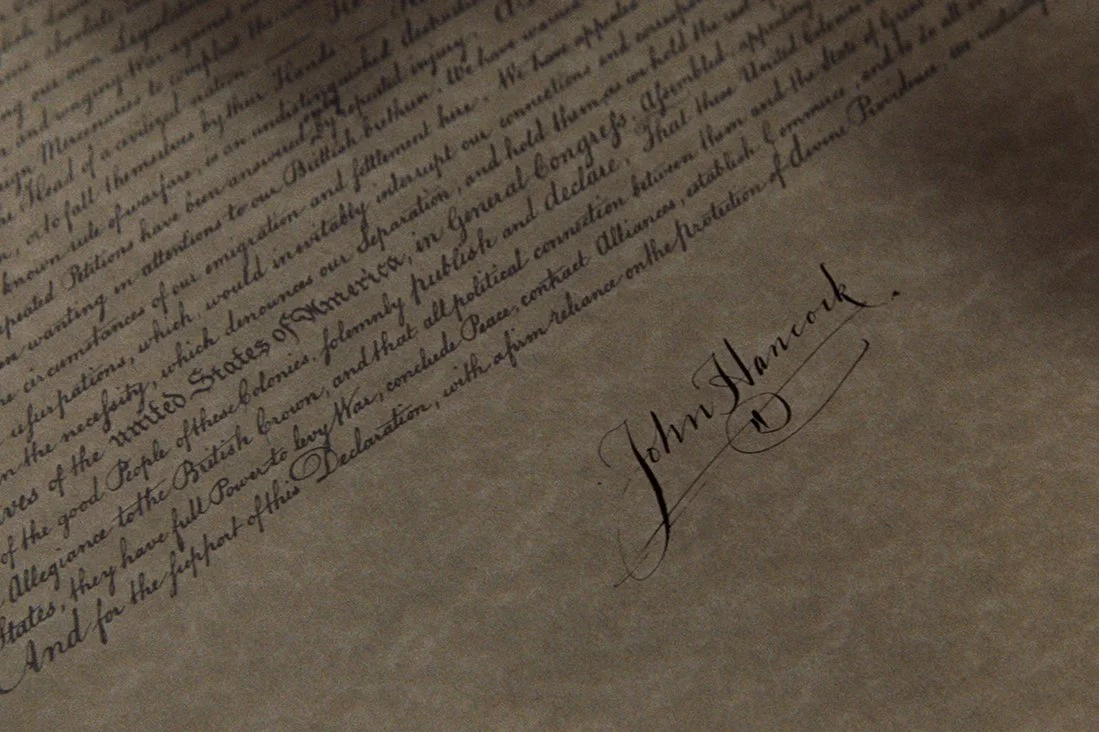 our own Legislatures
and waging War against us
Mercenaries to compleat the
Head of a civilized nation.
or to fall themselves by their Hands.
known rule of warfare, is an undistinguished destruction
Petitions have been answered by repeated injury.
wanting in attentions to our British brethren. We have warned
circumstances of our emigration and settlement here. We have appealed
usurpations, which, would inevitably interrupt our connections and
the necessity, which denounces our Separation, and hold them, as we hold the rest
of the united States of America, in General Congress, Assembled, appealing
of the good People of these Colonies, solemnly publish and declare, That these United Colonies
Allegiance to the British Crown, and that all political connection between them and the State of Great
States, they have full Power to levy War, conclude Peace, contract Alliances, establish Commerce, and to do all
And for the support of this Declaration, with a firm reliance on the protection of divine Providence, we mutually
John Hancock